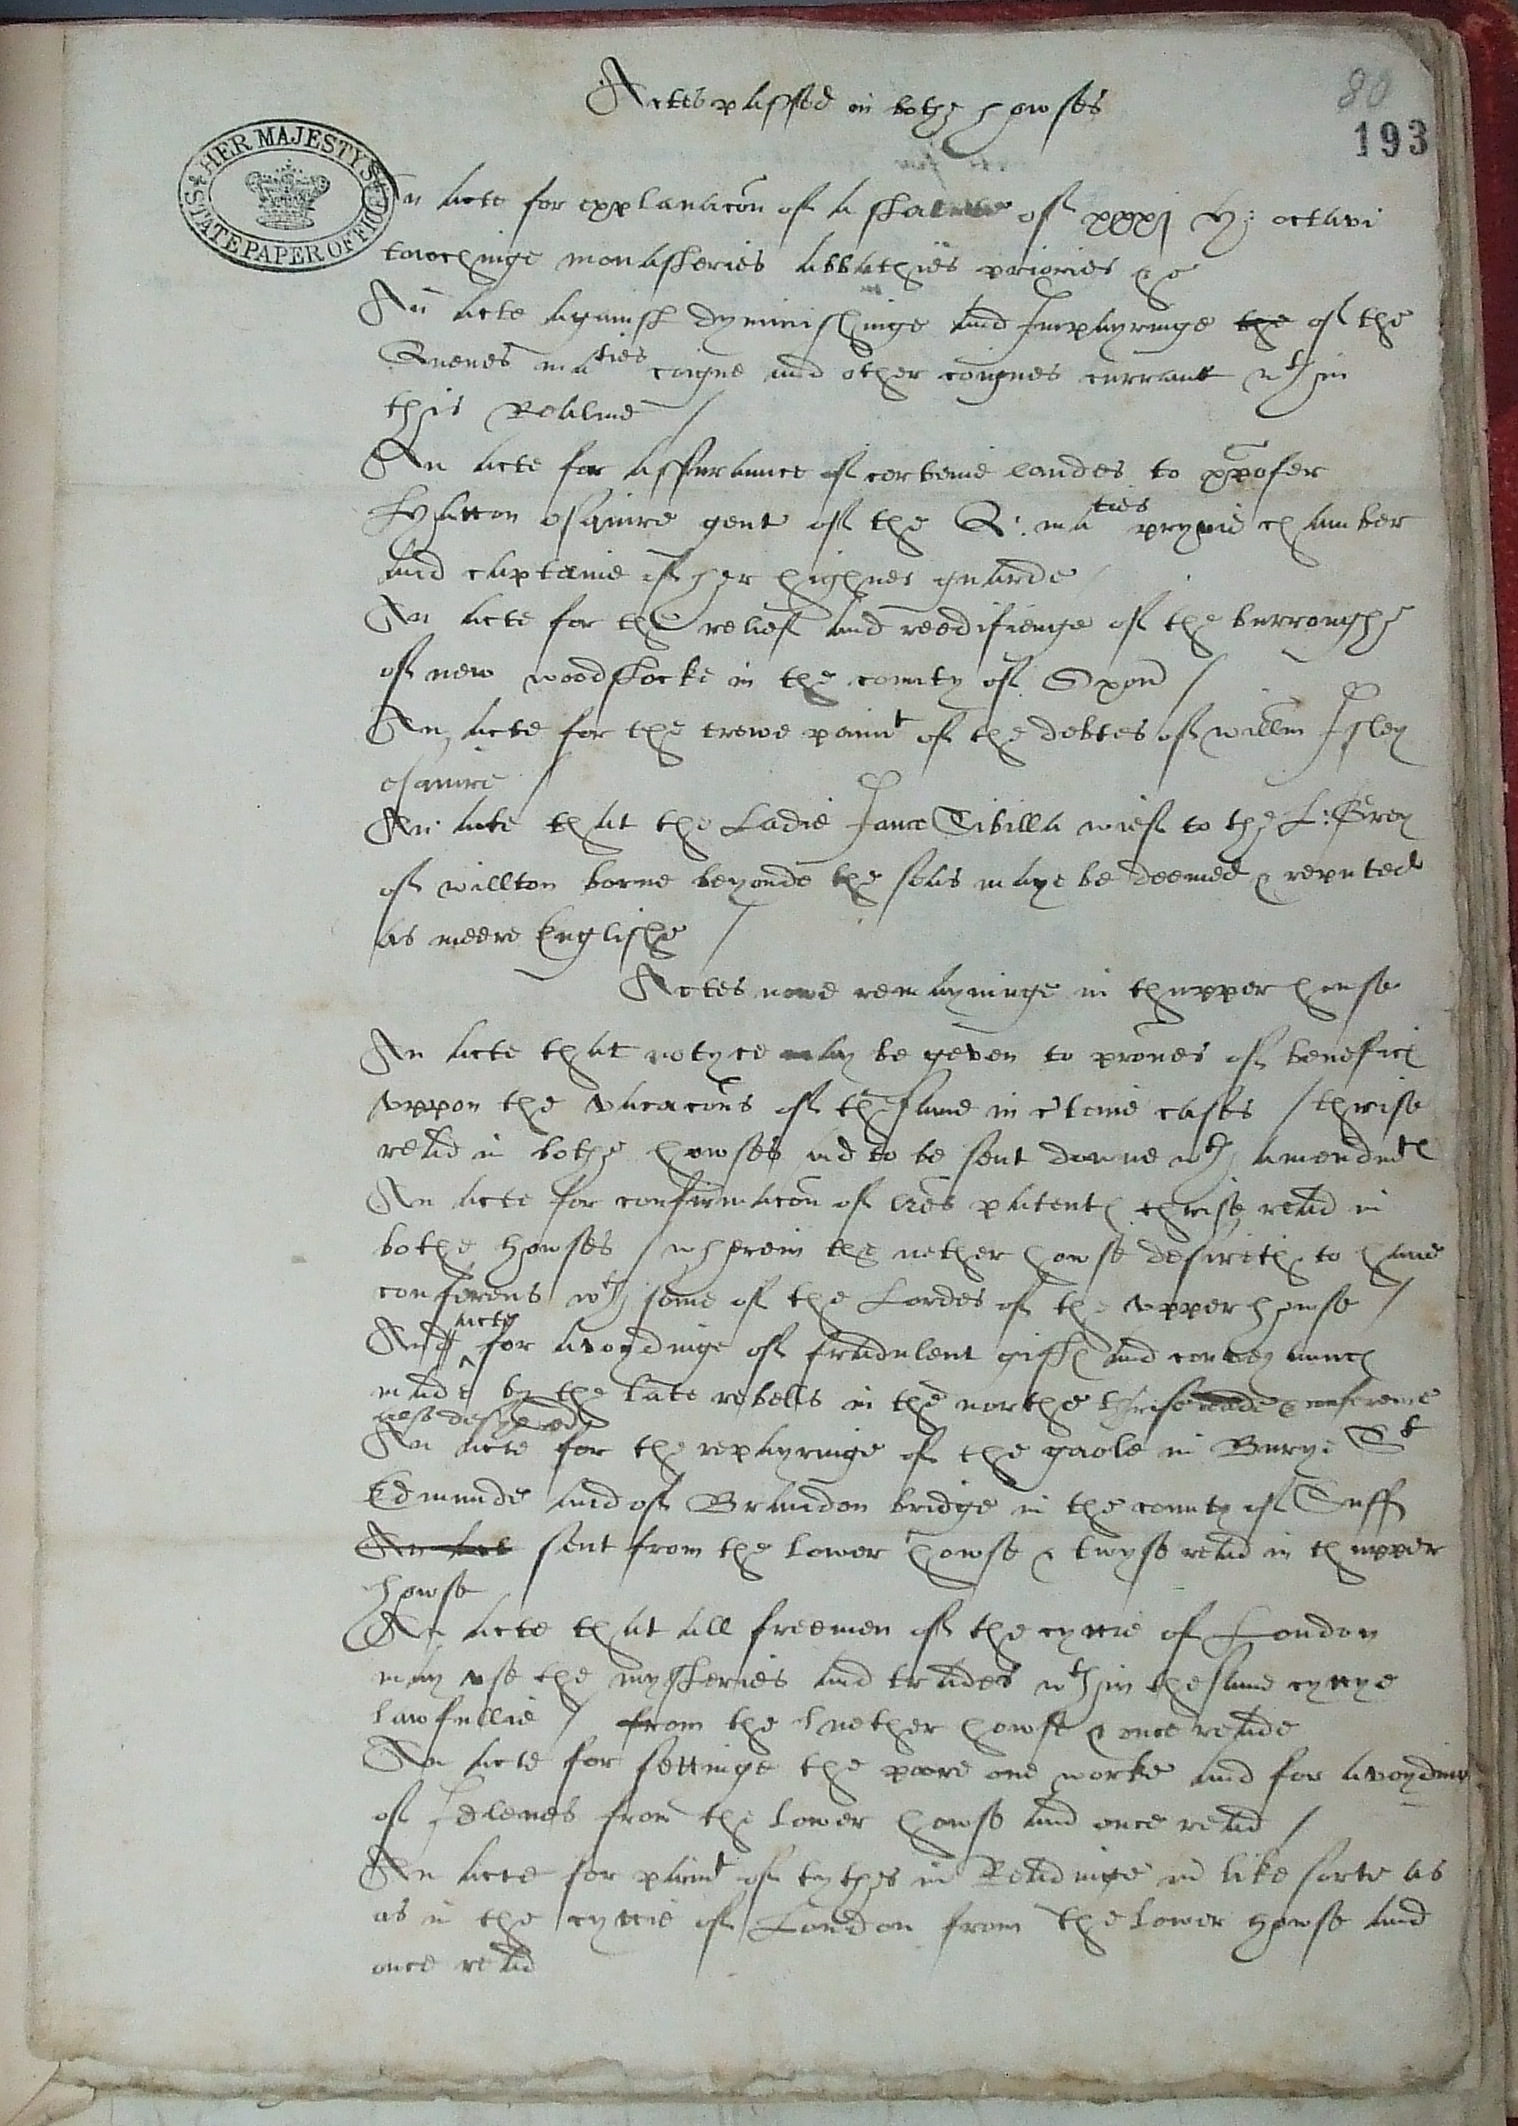 Actes passed in bothe howses
80
193
HER MAJESTY'S STATE PAPER OFFICE
An acte for explanacon of a statute of xxxj H: octavi
towchinge monasteries abbathies priories &c
An acte against dyminishinge and Impayringe the of the
Quenes maties coigne and other coignes currant wthin
this Realme /
An acte for assurance of certeine landes to xpofer
Hatton esquire gent of the Q: maties pryvie chamber
and captaine of her highnes guarde /
An acte for the relief and reedifienge of the burroughe
of new woodstocke in the county of Oxon /
An acte for the trewe paimt of the debtes of willm Isley
esquire /
An acte that the Ladie Jane Sibilla wief to the L: Grey
of willton borne beyonde the seas maye be deemed & reputed
as meere Englishe /
Actes nowe remayninge in thupper house
An acte that notyce may be geven to prones of benefic
uppon the vacacons of the same in ctaine cases / thrise
read in bothe howses and to be sent downe wth amendmtes
An acte for confirmacon of lres patentes thrise read in
bothe howses / wherein the nether howse desireth to have
conferens wth some of the Lordes of the upper house /
And acte for avoydinge of fradulent giftes and conveyances
made by the late rebells in the northe thrise reade & conference
also desyered
An acte for the repayringe of the gaole in Burye St
Edmunde and of Brandon bridge in the county of Suff
An acte sent from the lower howse & twyse read in thupper
howse
An acte that all freemen of the cyttie of London
may use the mysteries and trades wthin the same cyttye
lawfullie / from the nether howse & once reade
An acte for settinge the poore one worke and for avoydinge
of Idlenes from the lower howse and once read /
An acte for paimt of tythes in Readinge in like sorte as
as in the cyttie of London from the lower howse and
once read